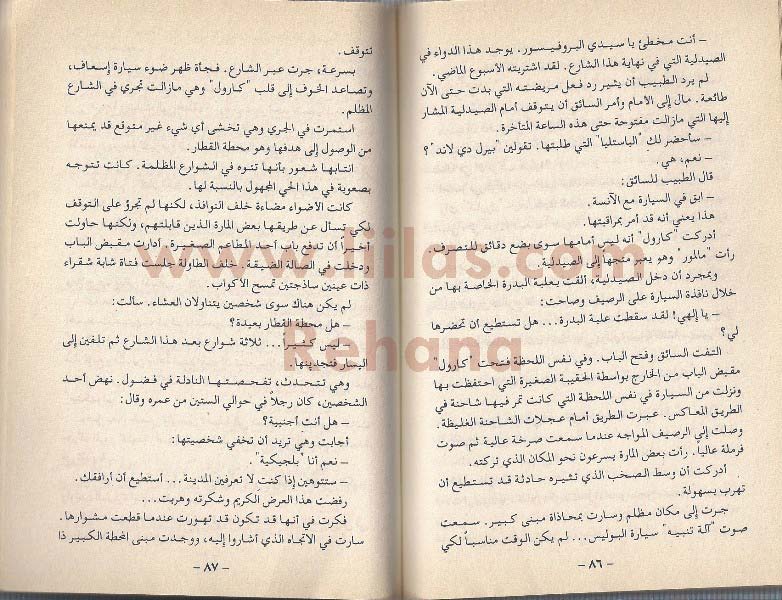 – أنت مخطئ يا سيدي البروفيسور. يوجد هذا الدواء في
الصيدلية التي في نهاية هذا الشارع. لقد اشتريته الأسبوع الماضي.
لم يرد الطبيب أن يثير رد فعل مريضته التي بدت حتى الآن
طائعة. مال إلى الأمام وأمر السائق أن يتوقف أمام الصيدلية المشار
إليها التي مازالت مفتوحة حتى هذه الساعة المتأخرة.
– سأحضر لك "الباستليا" التي طلبتها. تقولين "بيرل دي لاند"؟
– نعم، هي.
قال الطبيب للسائق:
– ابق في السيارة مع الآنسة.
هذا يعني أنه قد أمر بمراقبتها.
أدركت "كارول" أنه ليس أمامها سوى بضع دقائق للتصرف
رأت "مالمور" وهو يعبر متجهاً إلى الصيدلية.
وبمجرد أن دخل الصيدلية، ألقت بعلبة البدرة الخاصة بها من
خلال نافذة السيارة على الرصيف وصاحت:
– يا إلهي! لقد سقطت علبة البدرة... هل تستطيع أن تحضرها
لي؟
التفت السائق وفتح الباب. وفي نفس اللحظة فتحت "كارول"
مقبض الباب من الخارج بواسطة الحقيبة الصغيرة التي احتفظت بها
ونزلت من السيارة في نفس اللحظة التي كانت تمر فيها شاحنة في
الطريق المعاكس. عبرت الطريق أمام عجلات الشاحنة الغليظة.
وصلت إلى الرصيف المواجه عندما سمعت صرخة عالية ثم صوت
فرملة عالياً. رأت بعض المارة يسرعون نحو المكان الذي تركته.
أدركت أن وسط الصخب الذي تثيره حادثة قد تستطيع أن
تهرب بسهولة.
جرت إلى مكان مظلم وسارت بمحاذاة مبنى كبير. سمعت
صوت "آلة تنبيه" سيارة البوليس... لم يكن الوقت مناسباً لكي
– ٨٦ –
تتوقف.
بسرعة، جرت عبر الشارع. فجأة ظهر ضوء سيارة إسعاف،
وتصاعد الخوف إلى قلب "كارول" وهي مازالت تجري في الشارع
المظلم.
استمرت في الجري وهي تخشى أي شيء غير متوقع قد يمنعها
من الوصول إلى هدفها وهو محطة القطار.
انتابها شعور بأنها تتوه في الشوارع المظلمة. كانت تتوجه
بصعوبة في هذا الحي المجهول بالنسبة لها.
كانت الأضواء مضاءة خلف النوافذ، لكنها لم تجرؤ على التوقف
لكي تسأل عن طريقها بعض المارة الذين قابلتهم، ولكنها حاولت
أخيراً أن تدفع باب أحد المطاعم الصغيرة. أدارت مقبض الباب
ودخلت في الصالة الضيقة. خلف الطاولة جلست فتاة شابة شقراء
ذات عينين ساذجتين تمسح الأكواب.
لم يكن هناك سوى شخصين يتناولان العشاء. سألت:
– هل محطة القطار بعيدة؟
– ليس كثيراً... ثلاثة شوارع بعد هذا الشارع ثم تلفين إلى
اليسار فتجدينها.
وهي تتحدث، تفحصتها النادلة في فضول. نهض أحد
الشخصين، كان رجلاً في حوالي الستين من عمره وقال:
– هل أنت أجنبية؟
أجابت وهي تريد أن تخفي شخصيتها:
– نعم أنا "بلجيكية".
– ستتوهين إذا كنت لا تعرفين المدينة... أستطيع أن أرافقك.
رفضت هذا العرض الكريم وشكرته وهربت...
فكرت في أنها قد تكون قد تهورت عندما قطعت مشوارها.
سارت في الاتجاه الذي أشاروا إليه، ووجدت مبنى المحطة الكبير ذا
– ٨٧ –
www.liilas.com
Rehana